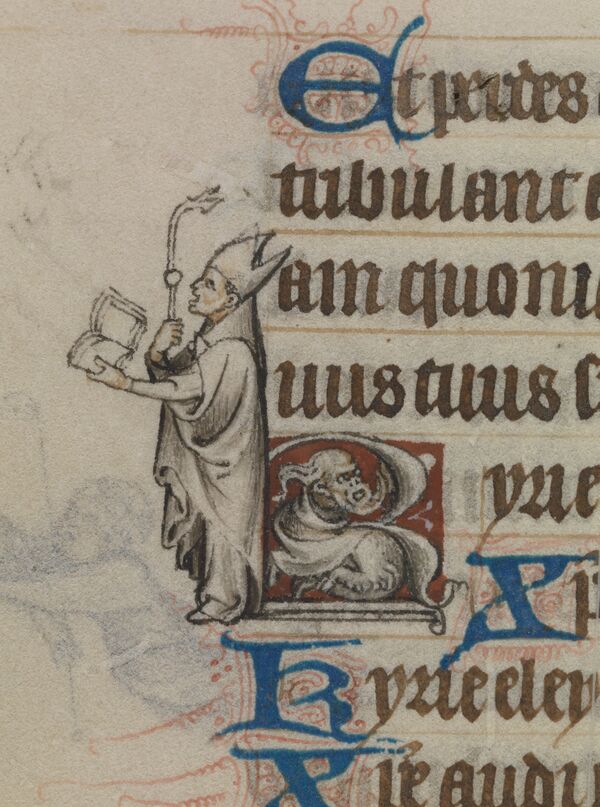 Et perdes
tribulant a
am quoni
uus tuus s
Kyrie
Xp
Kyrie eley
Xpe audi